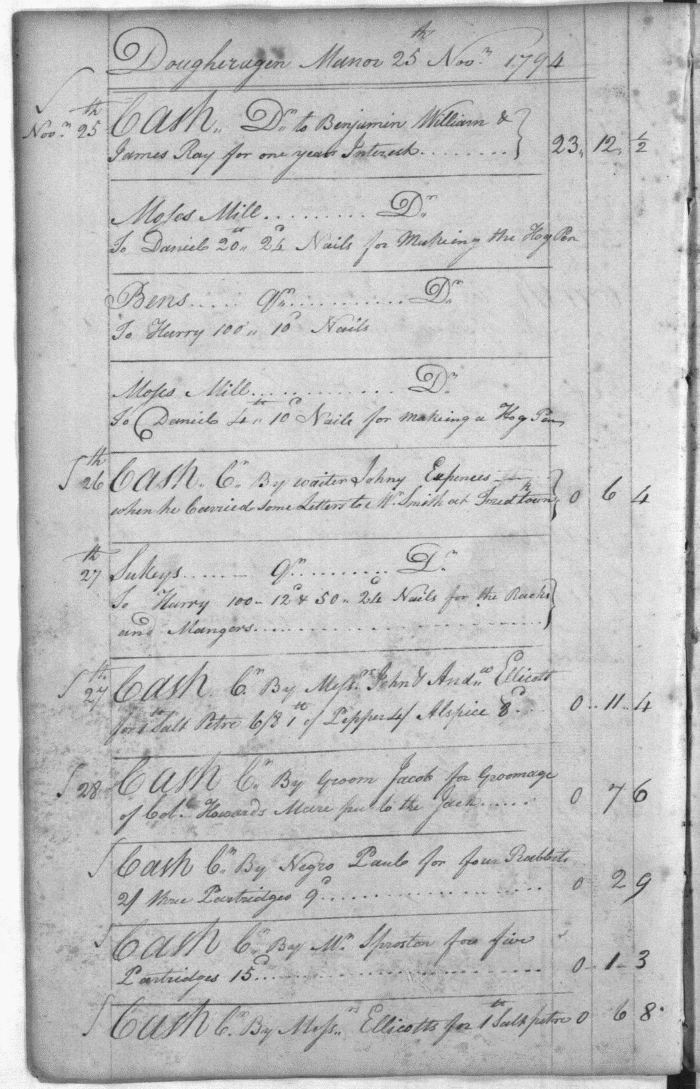 Dougheragen Manor 25th Novr 1794
Novr 25th Cash „ Dr to Benjamin William &
James Ray for one years Interest . . . . . . . . } 23 „ 12 „ ½
Moses Mill . . . . . . . . . Dr
To Daniel 20 „ 24d Nails for Making the Hog Pen
Bens . . . . . Qr . . . . . . . . . . Dr
To Harry 100 „ 10d Nails
Moses Mill . . . . . . . . . . . . Dr
To Daniel 4th „ 10d Nails for making a Hog Pen
26th Cash „ Cr By waiter Johny Expences
when he Carried some Letters to Mr Smith at town } 0 6 4
27th Sukeys . . . . . . Qr . . . . . . . . Dr
To Harry 100 „ 12d & 50 „ 24d Nails for the Racks
and Mangers . . . . . . . . . . . . . . . . . . . . . }
27th Cash „ Cr By Messrs John & Andw Ellicott
for 1th Salt Petre 6/8 1th of Pepper 4/ Alspice 8d 0 „ 11 „ 4
28 Cash Cr By Groom Jacob for Groomage
of Col. Howards Mare put to the Jack . . . . . 0 7 6
Cash Cr By Negro Paul for four Rabbits
2/ three Partridges 9d . . . . . . . . . . . . . . . . . . 0 2 9
Cash Cr By Mr Sproston for five
Partridges 15d . . . . . . . . . . . . . . . . . . . . . . . 0 „ 1 „ 3
Cash Cr By Messrs Ellicotts for 1th Saltpetre 0 6 8